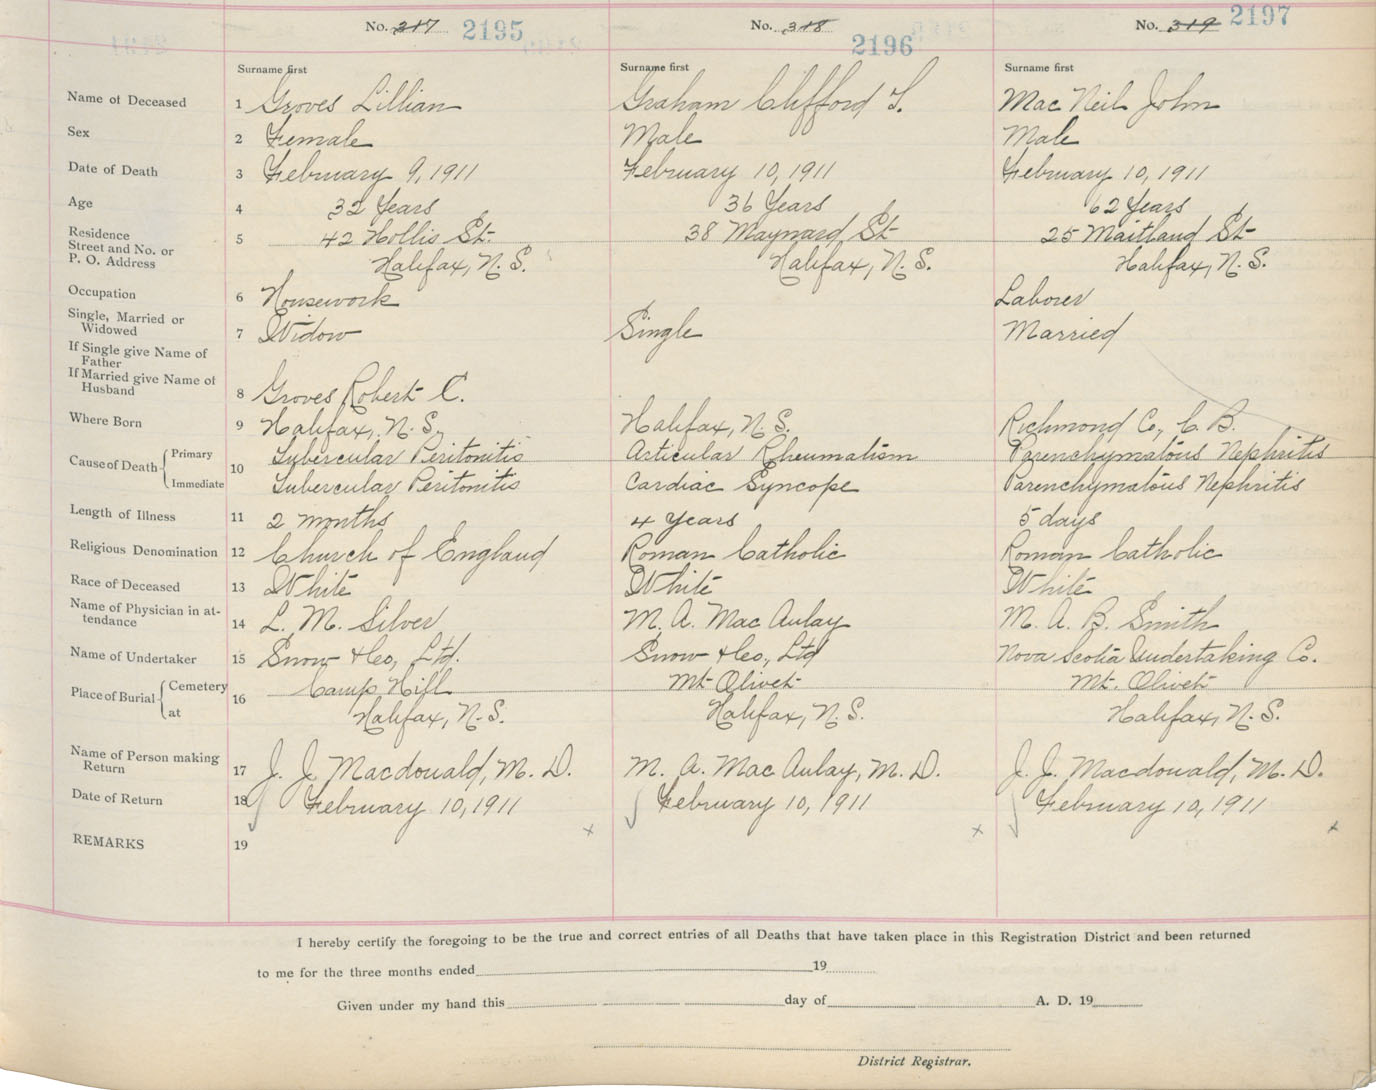 No. 317 2195 No. 318 2196 No. 319 2197
Surname first Surname first Surname first
Name of Deceased 1 Groves Lillian Graham Clifford T. Mac Neil John
Sex 2 Female Male Male
Date of Death 3 February 9, 1911 February 10, 1911 February 10, 1911
Age 4 32 Years 36 Years 62 Years
Residence
Street and No. or 5 42 Hollis St. 38 Maynard St 25 Maitland St
P. O. Address Halifax, N. S. Halifax, N. S. Halifax, N. S.
Occupation 6 Housework Laborer
Single, Married or
Widowed 7 Widow Single Married
If Single give Name of
Father
If Married give Name of
Husband 8 Groves Robert C.
Where Born 9 Halifax, N. S. Halifax, N. S. Richmond Co., C. B.
Cause of Death Primary 10 Tubercular Peritonitis Articular Rheumatism Parenchymatous Nephritis
Immediate Tubercular Peritonitis Cardiac Syncope Parenchymatous Nephritis
Length of Illness 11 2 months 4 Years 5 days
Religious Denomination 12 Church of England Roman Catholic Roman Catholic
Race of Deceased 13 White White White
Name of Physician in at-
tendance 14 L. M. Silver M. A. Mac Aulay M. A. B. Smith
Name of Undertaker 15 Snow & Co., Ltd. Snow & Co., Ltd Nova Scotia Undertaking Co.
Place of Burial Cemetery 16 Camp Hill Mt Olivet Mt. Olivet
at Halifax, N. S. Halifax, N. S. Halifax, N. S.
Name of Person making
Return 17 J. J. Macdonald, M. D. M. A. Mac Aulay, M. D. J. J. Macdonald, M. D.
Date of Return 18 February 10, 1911 February 10, 1911 February 10, 1911
REMARKS 19 x x x
I hereby certify the foregoing to be the true and correct entries of all Deaths that have taken place in this Registration District and been returned
to me for the three months ended 19
Given under my hand this day of A. D. 19
District Registrar.